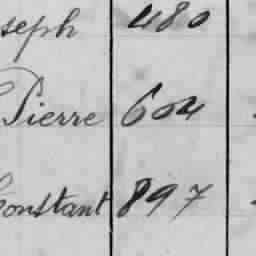 seph 480
Pierre 604
Constant 897